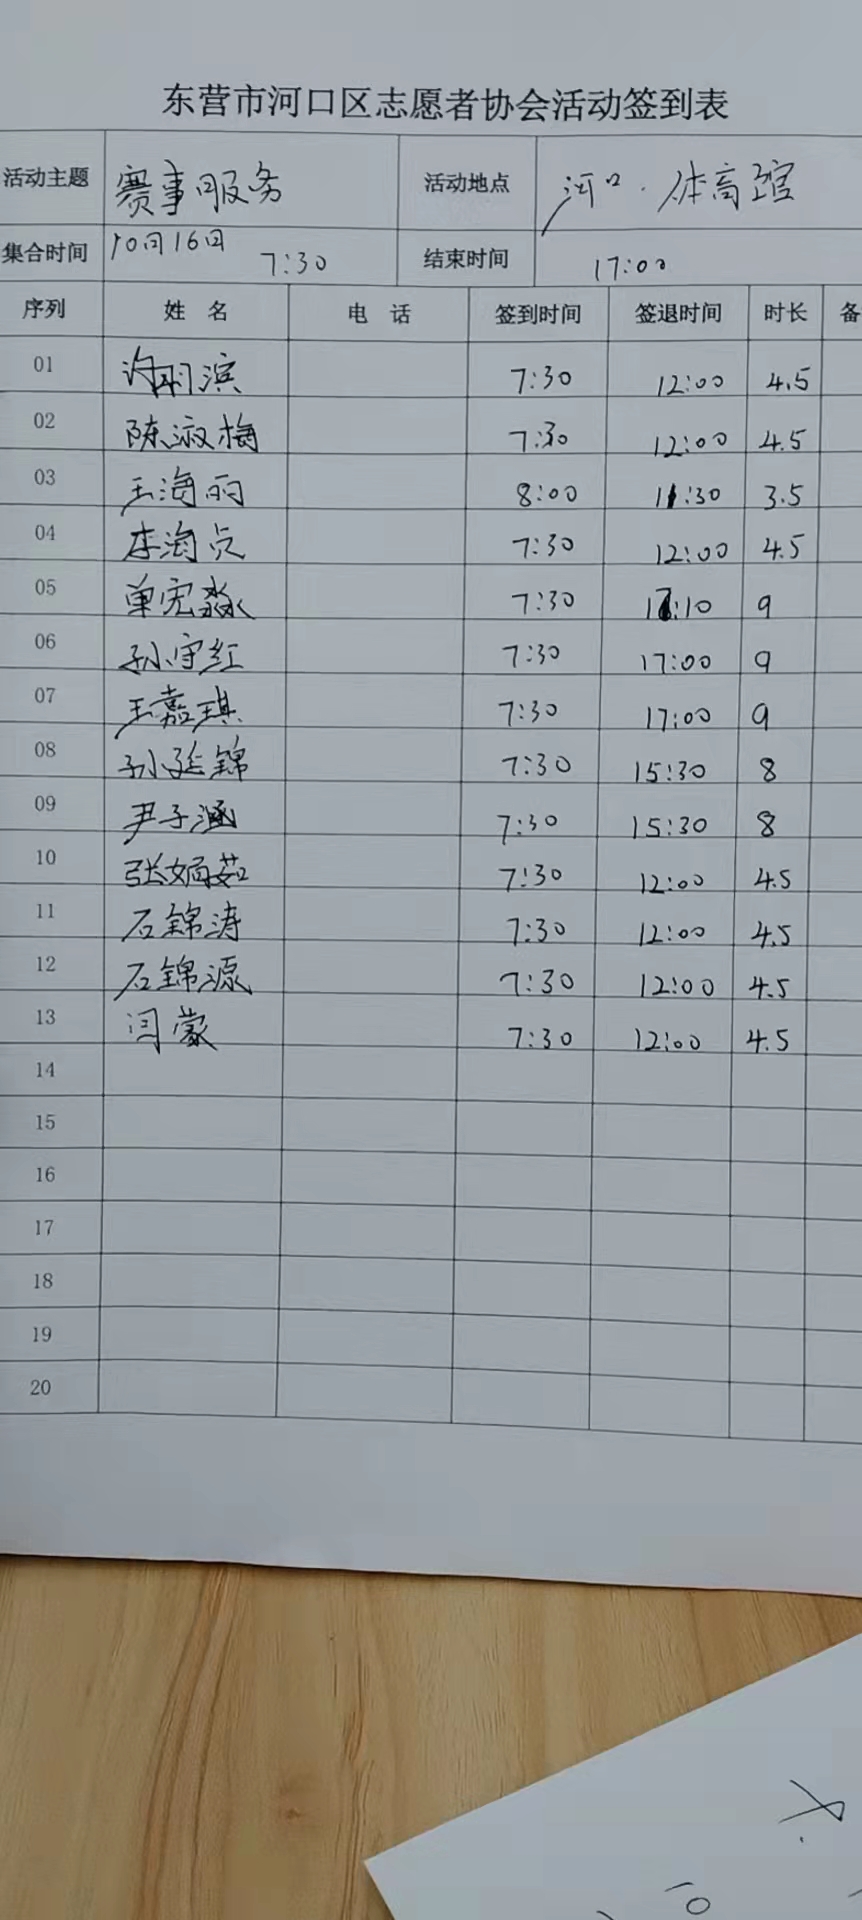 东营市河口区志愿者协会活动签到表
活动主题 赛事服务 活动地点 河口·体育馆
集合时间 10月16日 7:30 结束时间 17:00
序列 姓 名 电 话 签到时间 签退时间 时长 备
01 滨 7:30 12:00 4.5
02 陈淑梅 7:30 12:00 4.5
03 王海丽 8:00 11:30 3.5
04 李海贞 7:30 12:00 4.5
05 单宪淼 7:30 9
06 孙守红 7:30 17:00 9
07 王嘉琪 7:30 17:00 9
08 孙延锦 7:30 15:30 8
09 尹子涵 7:30 15:30 8
10 张婻茹 7:30 12:00 4.5
11 石锦涛 7:30 12:00 4.5
12 石锦源 7:30 12:00 4.5
13 闫蒙 7:30 12:00 4.5
14
15
16
17
18
19
20